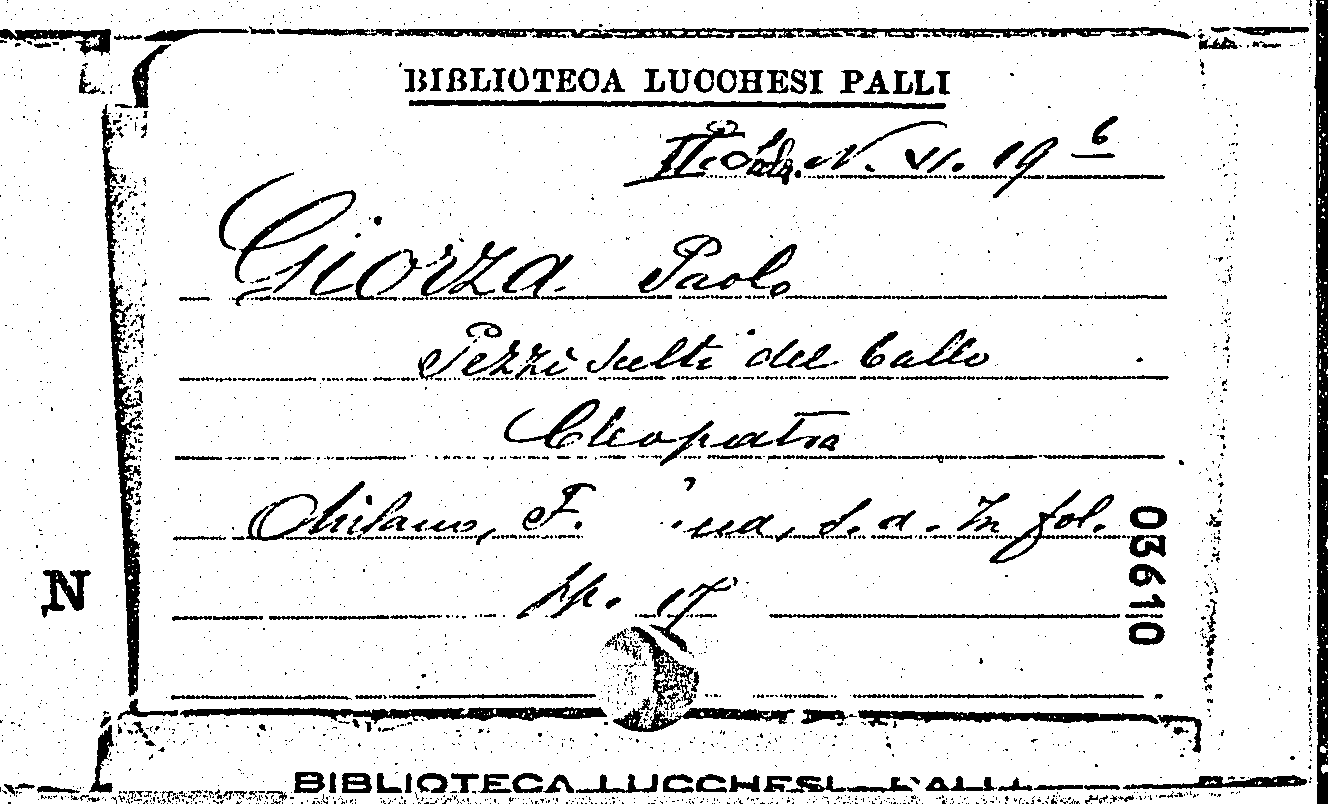 BIBLIOTECA LUCCHESI PALLI
N. VI. 19 6
Giorza Paolo
Pezzi scelti del ballo
Cleopatra
Milano, F. s. d. In fol.
pp. 17
03610
N
BIBLIOTECA LUCCHESI PALLI